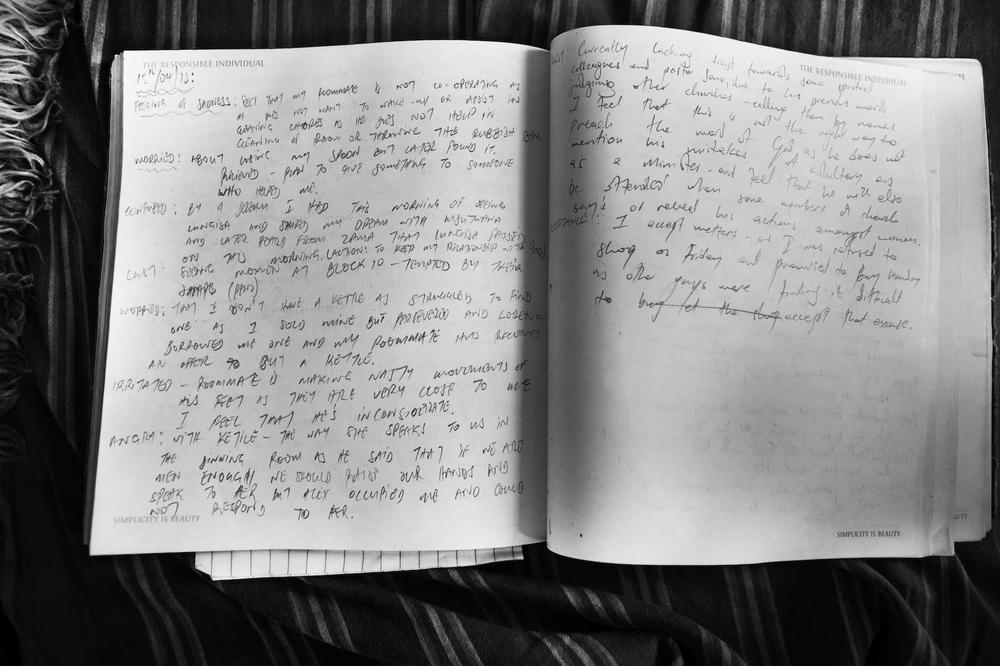 THE RESPONSIBLE INDIVIDUAL
FEELING OF SADNESS: FEEL THAT MY ROOMMATE IS NOT CO-OPERATING AS
HE DOES NOT WANT TO WAKE-UP OR ASSIST IN
CLEANING CHORES AS HE DOES NOT HELP IN
CLEANING OF ROOM OR THROWING THE RUBBISH
WORRIED: ABOUT LOSING MY SPOON BUT LATER FOUND IT.
RELIEVED - PLAN TO GIVE SOMETHING TO SOMEONE
WHO HELPED ME.
CONFUSED: BY A DREAM I HAD THIS MORNING OF SEEING
LUNGISA AND SHARED MY DREAM WITH
AND LATER HEARD FROM ZAMA THAT LUNGISA PASSED
ON THIS MORNING. (ACTION: TO KEEP MY RELATIONSHIP WITH GOD)
LUST: SEEING WOMEN AT BLOCK 10 - TEMPTED BY THEIR
WORRIED: THAT I DON'T HAVE A KETTLE AS STRUGGLED TO FIND
ONE AS I SOLD MINE BUT PERSEVERED AND LORENZO
BORROWED ME ONE AND MY ROOMMATE HAS RECEIVED
AN OFFER TO BUY A KETTLE.
IRRITATED - ROOMMATE IS MAKING NASTY MOVEMENTS OF
HIS FEET AS THEY ARE VERY CLOSE TO ME
I FEEL THAT HE'S INCONSIDERATE.
ANGRY: WITH - THE WAY SHE SPEAKS TO US IN
THE DINNING ROOM AS HE SAID THAT IF WE ARE
MEN ENOUGH WE SHOULD RAISE OUR HANDS AND
SPEAK TO HER BUT ALEX OCCUPIED ME AND COULD
NOT RESPOND TO HER.
SIMPLICITY IS BEAUTY
THE RESPONSIBLE INDIVIDUAL
Currently lacking trust towards some spiritual
colleagues and pastor due to his previous words
judging other churches - calling them by names
I feel that this is not the right way to
preach the word of God as he does not
mention his mistakes of adultery as
as a minister - and feel that he will also
be offended when some members of church
say's or reveal his actions amongst women.
I accept matters - as I was refused to
shop on Friday and promised to buy Monday
as other guys were finding it difficult
to buy let the shop accept that excuse.
SIMPLICITY IS BEAUTY